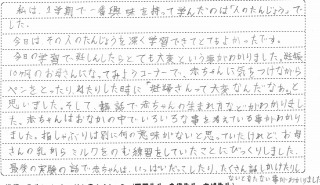 私は、1学期で一番興味を持って学んだのは「人のたんじょう」で
した。
今日はその人のたんじょうを深く学習できてとてもよかったです。
今日の学習で、妊しんしたらとても大変という事がわかりました。妊娠
10か月のお母さんになってみようコーナーで、赤ちゃんに気をつけながら
ペンをとったりねたりした時に「妊婦さんって大変なんだなぁ。」と
思いました。そして、講話で赤ちゃんの生まれ方などがわかりまし
た。赤ちゃんはおなかの中でいろいろな事を考えている事がわかり
ました。指しゃぶりは別に何の意味がないと思っていたけれど、お母
さんの乳からミルクをのむ練習をしていたことにびっくりしました。
最後の実験の話で、赤ちゃんは、いっぱいだっこしたり、たくさん話しかけたりし
ないと生きれない事がわかりました